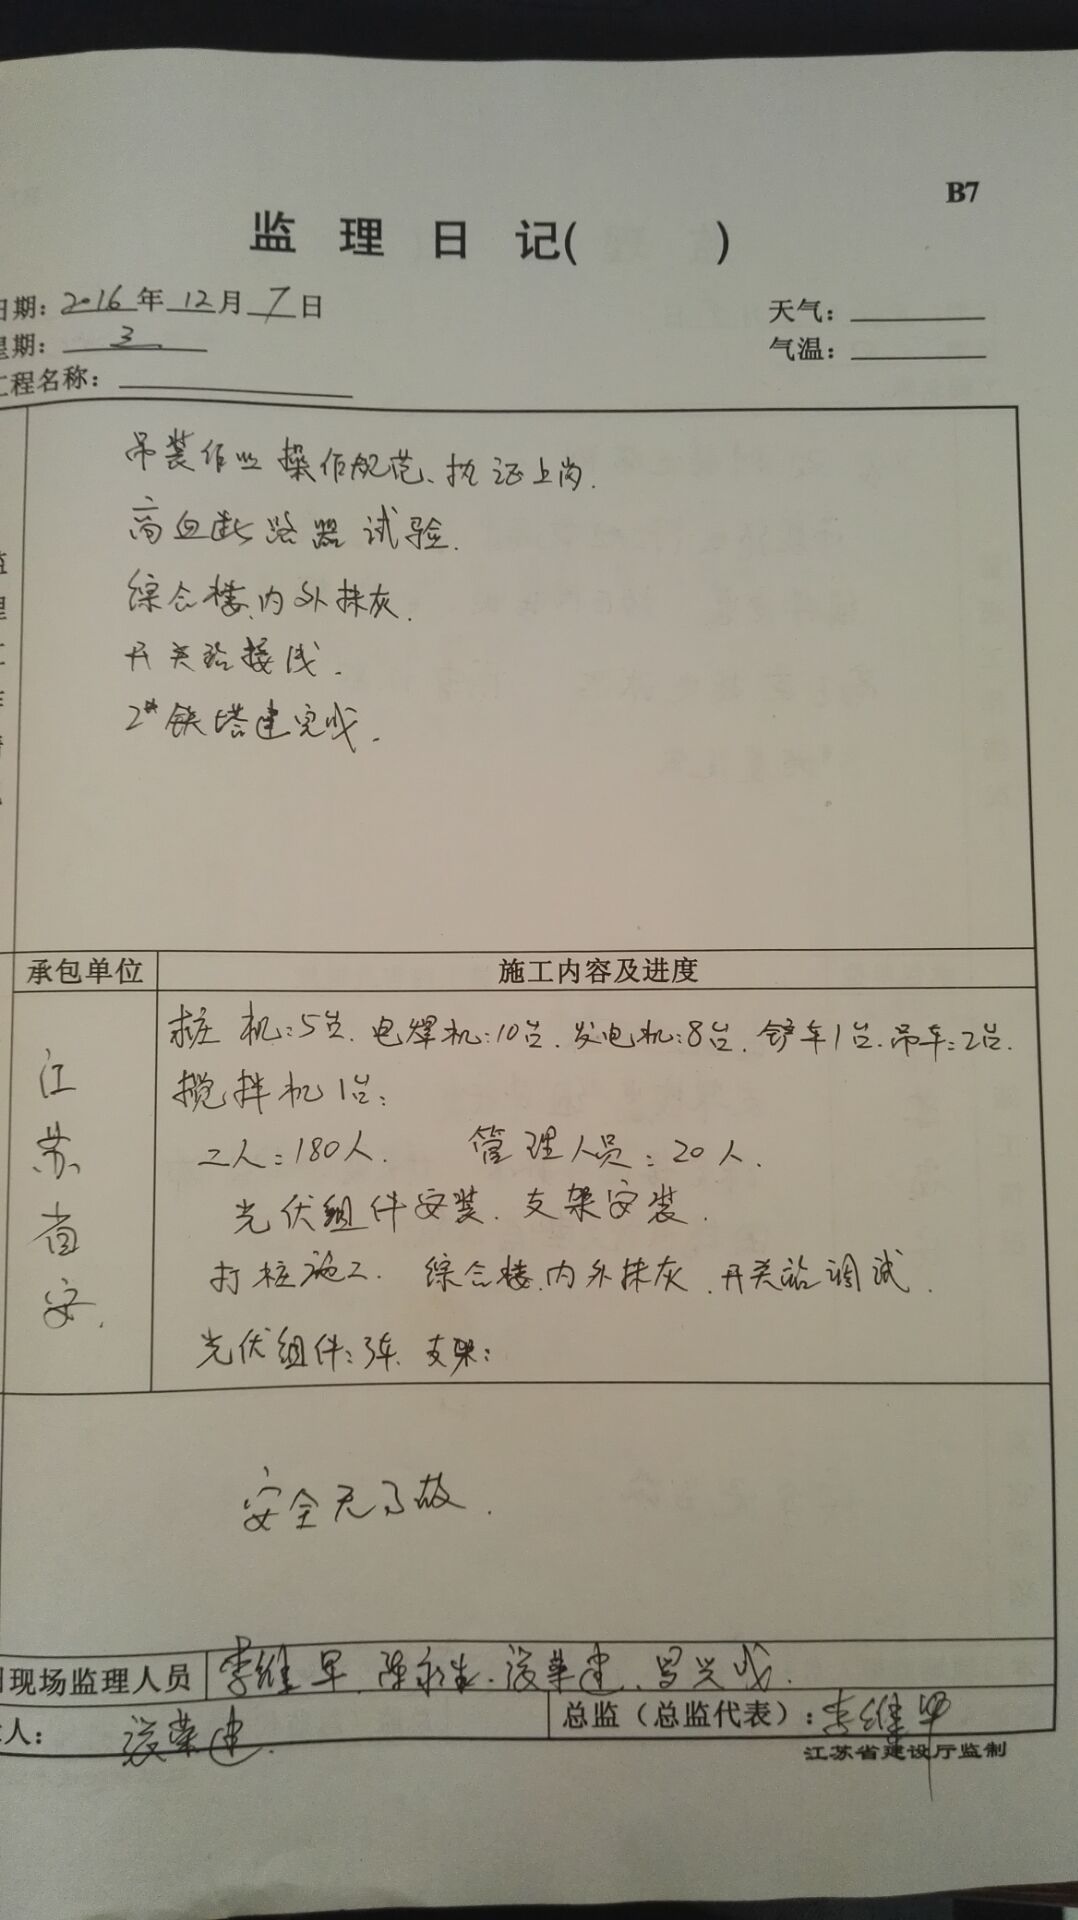 B7
监 理 日 记( )
日期：2016年12月7日
天气：
星期：3
气温：
工程名称：
吊装作业操作规范、执证上岗.
高血断路器试验.
综合楼内外抹灰.
开关站接线.
2#铁塔建完成.
承包单位 施工内容及进度
江苏省安.
桩机:5台. 电焊机:10台. 发电机:8台. 铲车1台. 吊车:2台.
搅拌机1台:
工人:180人. 管理人员:20人.
光伏组件安装. 支架安装.
打桩施工. 综合楼内外抹灰. 开关站调试.
光伏组件:3车. 支架:
安全无事故.
现场监理人员 李继 罗兴成.
人：
总监（总监代表）：李继
江苏省建设厅监制